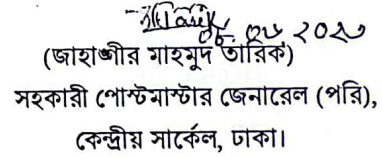 (জাহাঙ্গীর মাহমুদ তারিক)
সহকারী পোস্টমাস্টার জেনারেল (পরি),
কেন্দ্রীয় সার্কেল, ঢাকা।